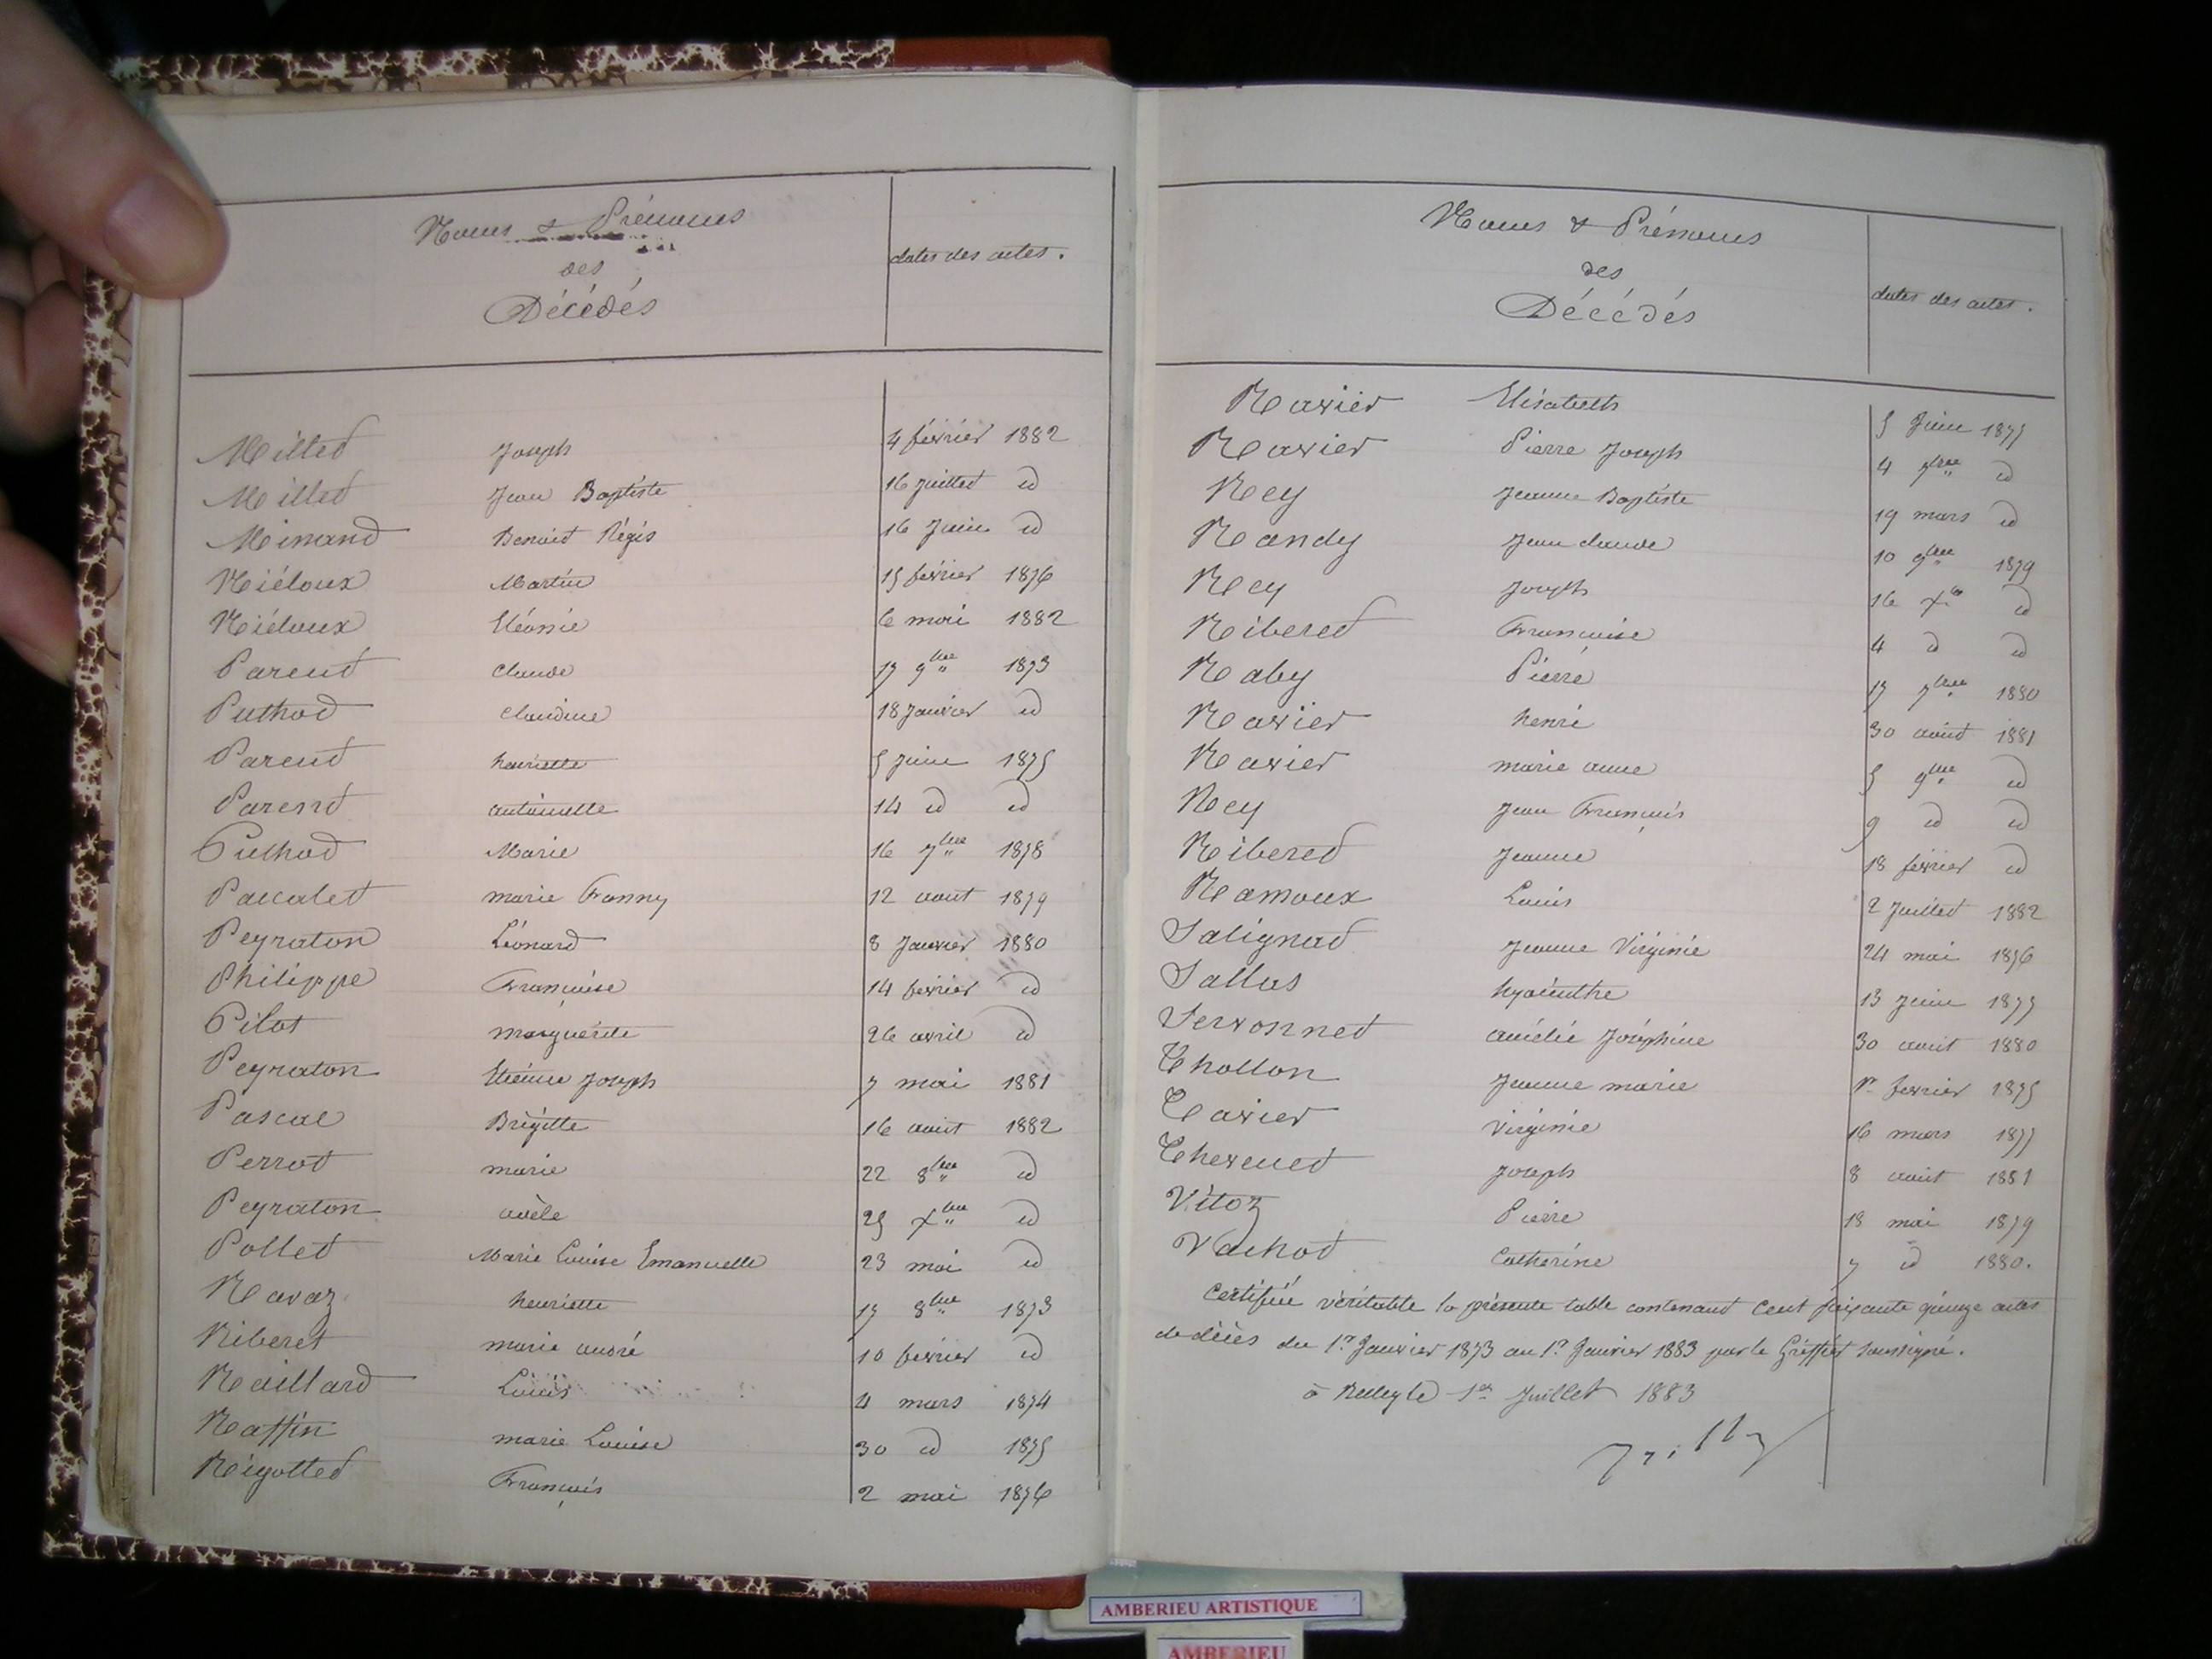 Noms & Prénoms
des
Décédés
dates des actes.
Millet Joseph 4 février 1882
Millet Jean Baptiste 16 Juillet id
Minand Benoit Régis 16 Juin id
Niéloux Martin 15 février 1876
Niéloux Eléonie 6 mai 1882
Parent Claude 17 9bre 1873
Puthod Claudine 18 Janvier id
Parent henriette 5 Juin 1875
Parent antoinette 14 id id
Puthod Marie 16 7bre 1878
Pascalet marie Franny 12 aout 1879
Peyraton Léonard 8 Janvier 1880
Philippe Françoise 14 février id
Pilot marguerite 26 avril id
Peyraton Etienne Joseph 7 mai 1881
Pascal Brigitte 16 aout 1882
Perrot marie 22 8bre id
Peyraton adèle 25 xbre id
Pollet Marie Louise Emanuelle 23 mai id
Ravaz henriette 17 8bre 1873
Riberet marie andré 10 février id
Raillard Louis 4 mars 1874
Raffin marie Louise 30 id 1875
Rigottet François 2 mai 1876
Noms & Prénoms
des
Décédés
dates des actes.
Ravier Elisabeth 5 Juin 1875
Ravier Pierre Joseph 4 id
Rey Jeanne Baptiste 19 mars id
Randy Jean claude 10 9bre 1879
Rey Joseph 16 xbre id
Riberet Françoise 4 d id
Raby Pierre 17 7bre 1880
Ravier henri 30 août 1881
Ravier marie anne 5 9bre id
Rey Jean François 9 id id
Riberet Jeanne 18 février id
Ramoux Louis 2 Juillet 1882
Salignat Jeanne Virginie 24 mai 1876
Sallus hyacinthe 13 Juin 1877
Servonnet amélie Joséphine 30 aout 1880
Thollon Jeanne marie 1er fevrier 1875
Tavier Virginie 16 mars 1877
Thevenet Joseph 8 aout 1881
Vitoz Pierre 18 mai 1879
Vachot Catherine 7 id 1880.
Certifiée véritable la présente table contenant cent soixante quinze actes
de décès du 1er Janvier 1873 au 1er Janvier 1883 par le Greffier soussigné.
à Belley le 1er Juillet 1883
AMBERIEU ARTISTIQUE
AMBERIEU